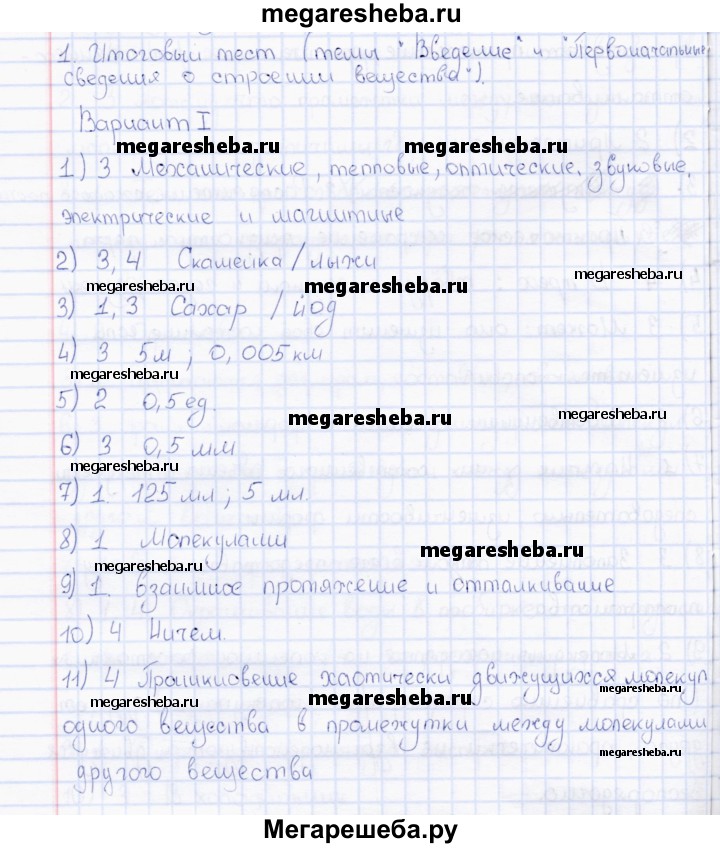 megaresheba.ru
1. Итоговый тест (темы "Введение" и "Первоначальные
сведения о строении вещества").
Вариант I
megaresheba.ru megaresheba.ru
1) 3 Механические, тепловые, оптические, звуковые,
электрические и магнитные
2) 3,4 Скамейка / лыжи
megaresheba.ru megaresheba.ru megaresheba.ru
3) 1,3 Сахар / йод
4) 3 5м ; 0,005км
megaresheba.ru
5) 2 0,5 ед.
megaresheba.ru megaresheba.ru
6) 3 0,5 мм
megaresheba.ru
7) 1. 125 мл ; 5 мл.
8) 1 Молекулами
megaresheba.ru megaresheba.ru
9) 1. взаимное протяжение и отталкивание
10) 4 Ничем.
megaresheba.ru
11) 4 Проникновение хаотически движущихся молекул
megaresheba.ru megaresheba.ru megaresheba.ru
одного вещества в промежутки между молекулами
megaresheba.ru
другого вещества
Мегарешеба.ру